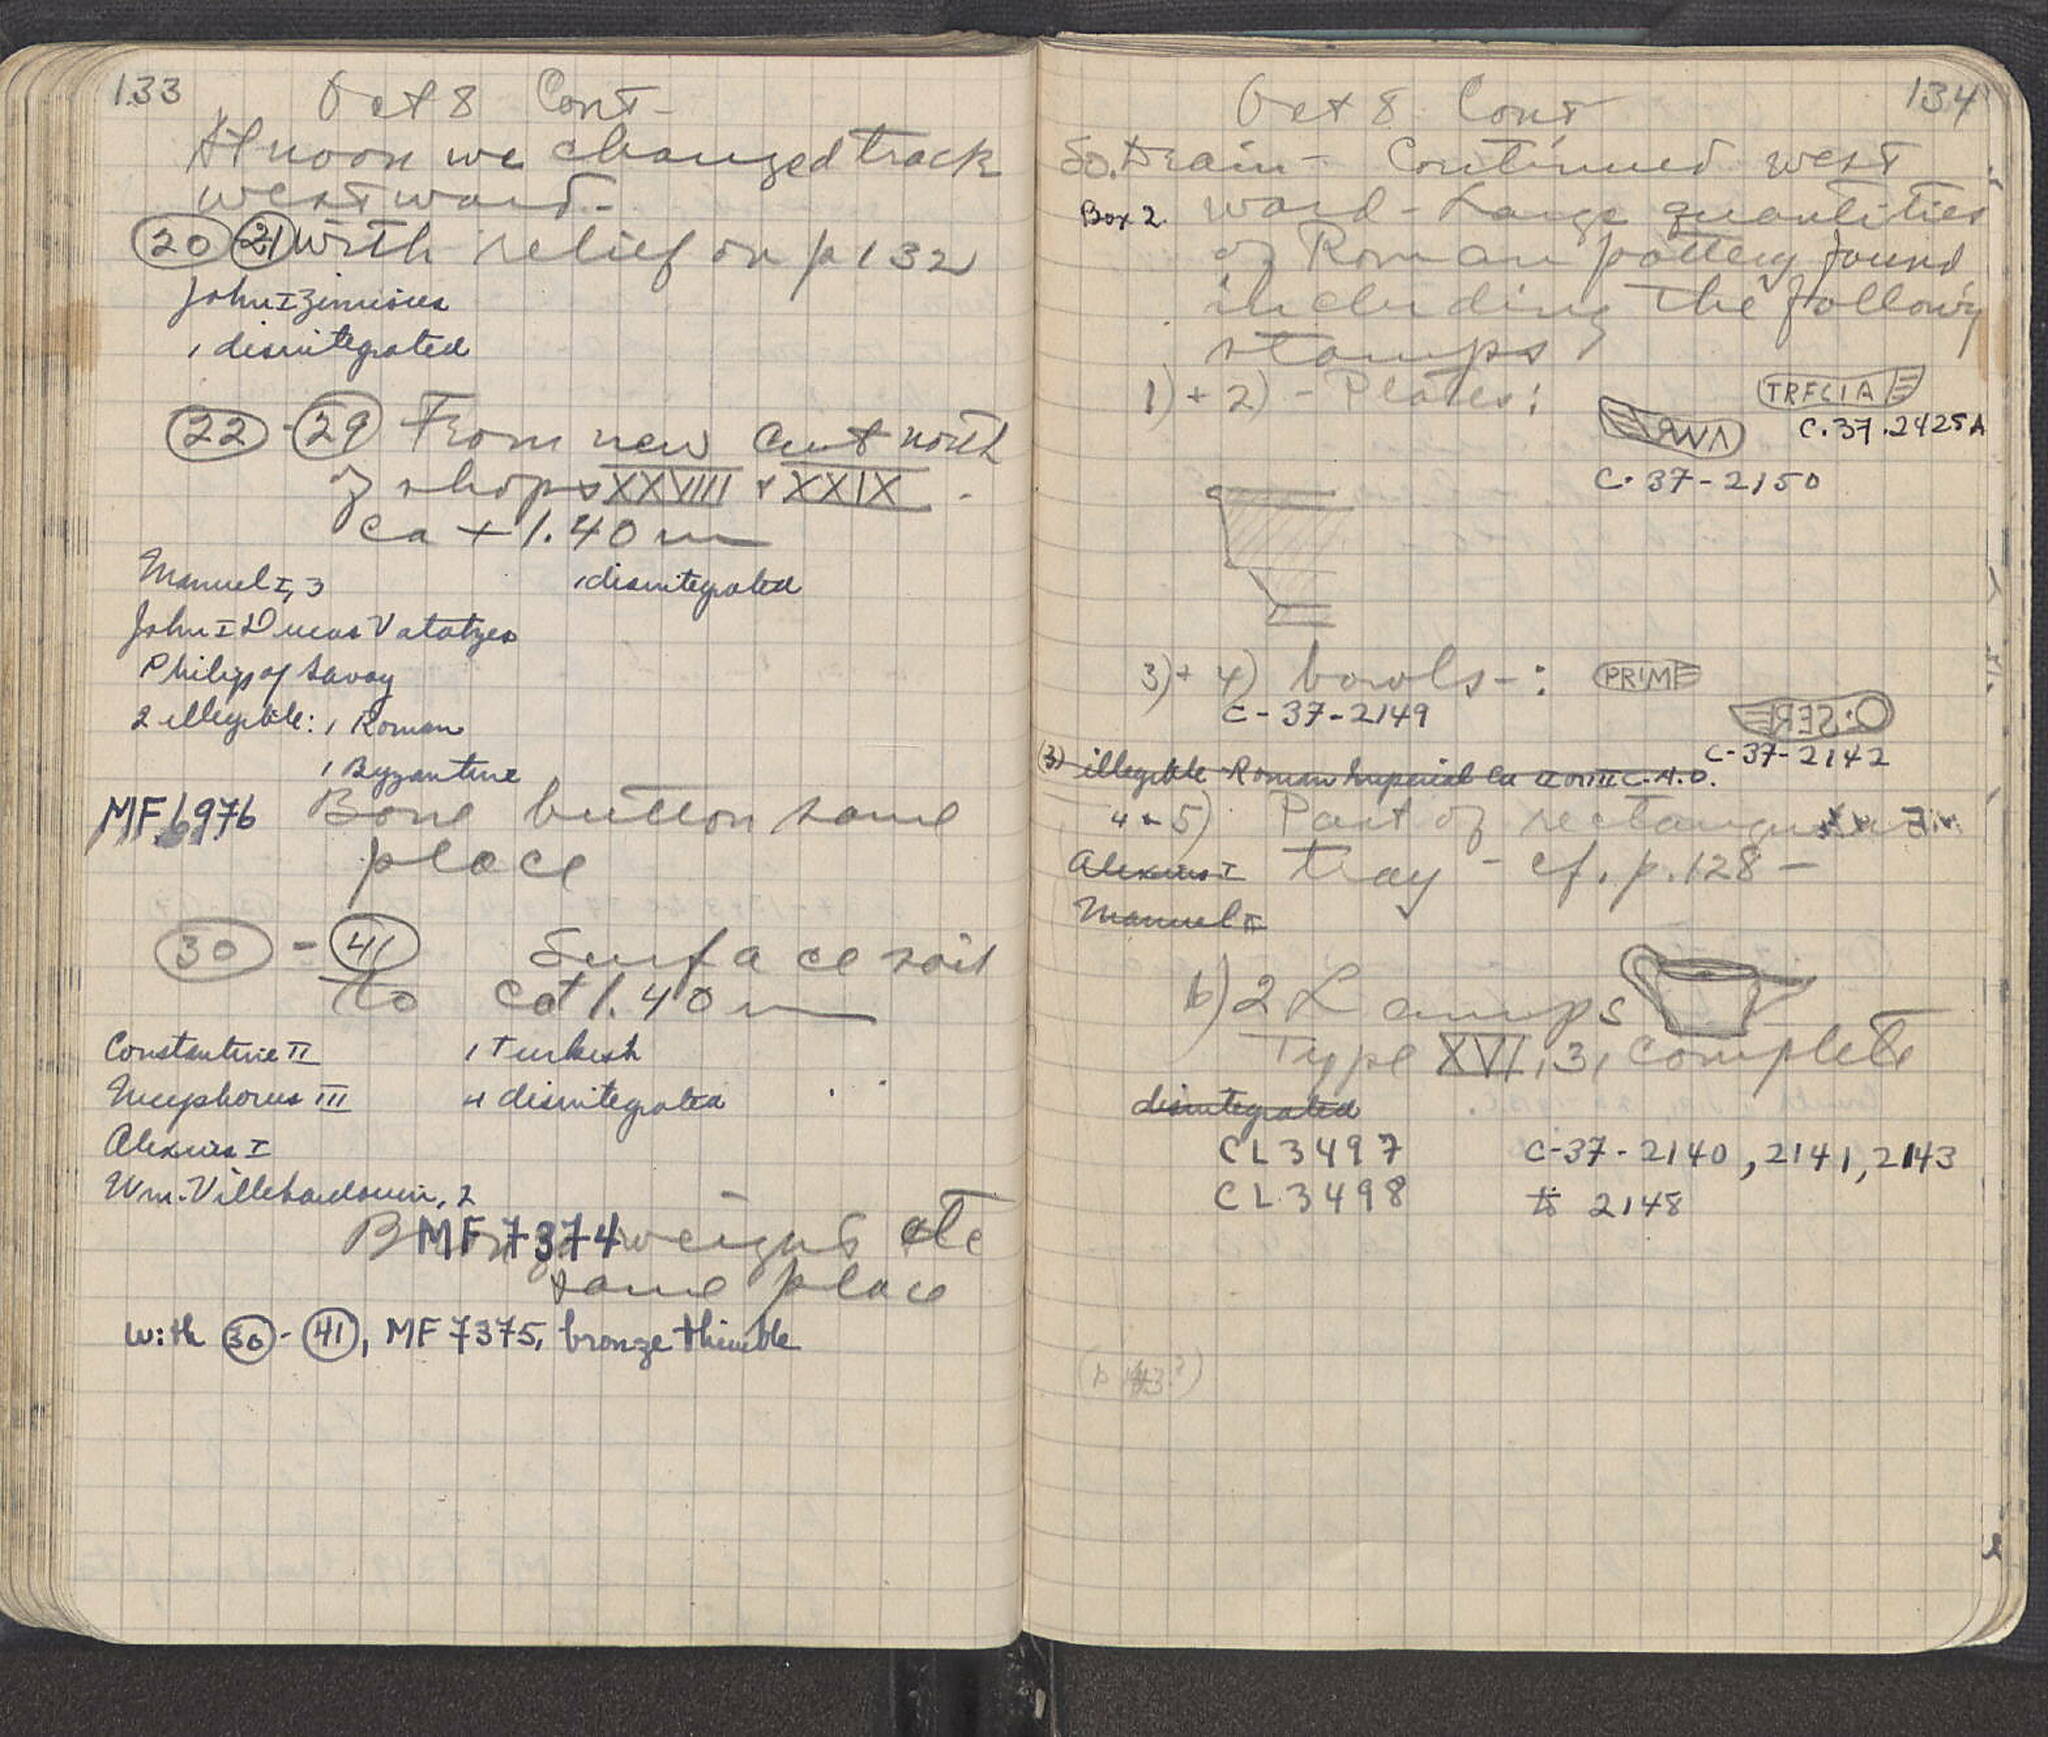 133
Oct 8 Cont-
At noon we changed track
westward-
20 21 with relief on p 132
John I Zimisces
1 disintegrated
22 - 29 From new cut north
of shops XXVIII + XXIX -
ca + 1.40 m
Manuel I, 3 1 disintegrated
John I Ducas Vatatzes
Philip of Savoy
2 illegible: 1 Roman
1 Byzantine
MF 6976 Bone button same
place
30 - 41 Surface soil
to ca + 1.40 m
Constantine II 1 Turkish
Nicephorus III 4 disintegrated
Alexius I
Wm. Villehardouin, 2
MF 7374 weight etc
same place
with 30 - 41, MF 7375, bronze thimble
134
Oct 8 Cont
So. Drain - Continued west
Box 2. ward - Large quantities
of Roman pottery found
including the follow'g
stamps
1) + 2) - Plates:
TRFCIA
C.37.2425A
C-37-2150
3) + 4) bowls - : PRIM
C-37-2149
SER
C-37-2142
(3) illegible Roman Imperial Ca II or III C. A.D.
4 - 5) Part of rectangular
Alexius I tray - cf. p. 128 -
Manuel I
6) 2 Lamps
Type XVI, 3, complete
disintegrated
CL 3497 C-37-2140, 2141, 2143
CL 3498 to 2148